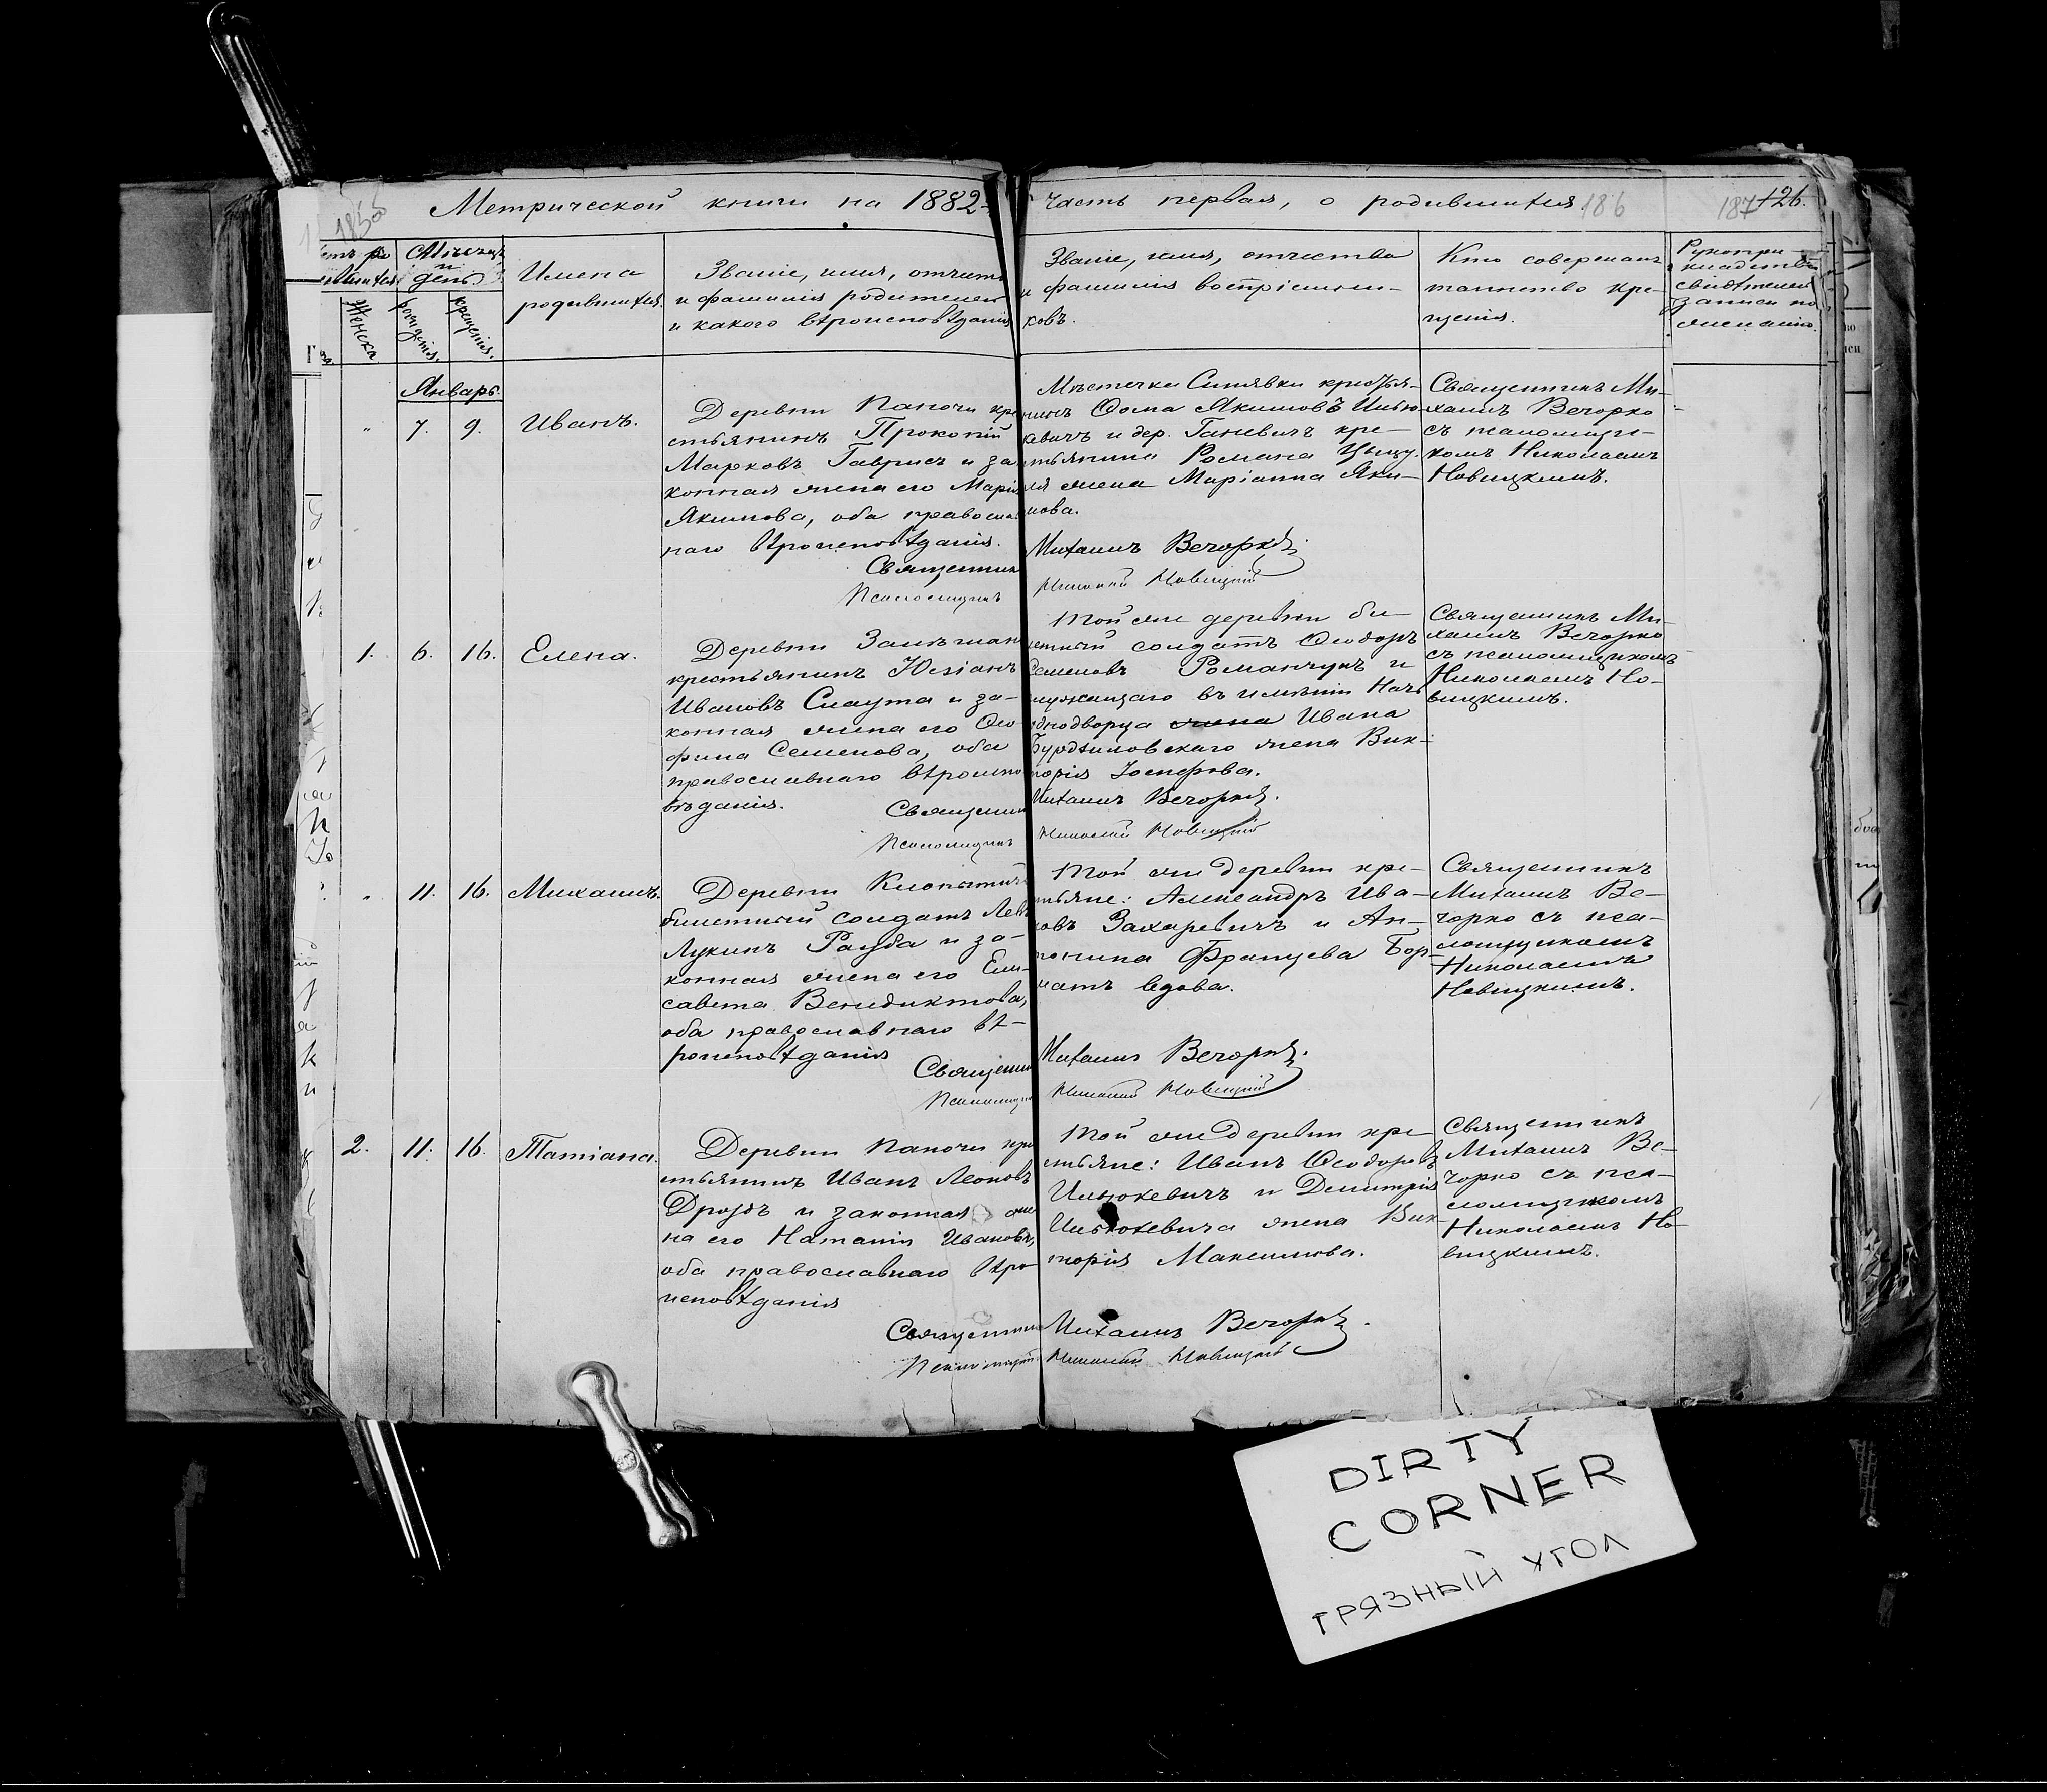 Метрической книги на 1882 часть первая, о родившихся. 186 187 126.
Мѣсяцъ
и
день.
Женска
рожденія.
крещенія.
Имена
родившихся.
Званіе, имя, отчест
и фамилія родителей
и какого вѣроисповѣданія
Званіе, имя, отчество
и фамилія воспріемни-
ковъ.
Кто совершалъ
таинство кре-
щенія.
Рукопри-
кладство
свидѣтелей
записи по
желанію.
Январь.
" 7. 9. Иванъ.
Деревни Паночи кре
стьянинъ Прокопій
Марковъ Гаврисъ и за
конная жена его Марія
Якимова, оба православ
наго вѣроисповѣданія.
Священник
Псаломщикъ
Мѣстечка Синявки крестья-
нинъ Ѳома Якимовъ Илью-
кевичъ и дер. Ганевичъ кре-
стьянина Романа
жена Маріанна Яки-
мова.
Михаилъ Вечорко.
Николай Новицкій
Священникъ Ми-
хаилъ Вечорко
съ псаломщи-
комъ Николаемъ
Новицкимъ.
1. 6. 16. Елена.
Деревни
крестьянинъ Юліанъ
Ивановъ Скаута и за-
конная жена его Ѳео-
фила Семенова, оба
православнаго вѣроиспо
вѣданія.
Священник
Псаломщикъ
Той же деревни би-
летный солдатъ Ѳеодоръ
Семеновъ Романчукъ и
служащаго въ имѣніи Начь
однодворца жена Ивана
жена Вик-
торія Іосифова.
Михаилъ Вечорко.
Николай Новицкій
Священникъ Ми-
хаилъ Вечорко
съ псаломщикомъ
Николаемъ Но-
вицкимъ.
" 11. 16. Михаилъ.
Деревни Клопытичи
билетный солдатъ Левъ
Лукинъ Рауба и за-
конная жена его Ели-
савета Венидиктова,
оба православнаго вѣ-
роисповѣданія
Священник
Псаломщик
Той же деревни кре-
стьяне: Александръ Ива-
новъ Захаревичъ и Ан-
тонина Францева Бор-
натъ вдова.
Михаилъ Вечорко.
Николай Новицкій
Священникъ
Михаилъ Ве-
чорко съ пса-
ломщикомъ
Николаемъ
Новицкимъ.
2. 11. 16. Татіана.
Деревни Паночи кре
стьянинъ Иванъ Леоновъ
Дроздъ и законная же
на его Наталія Иванова,
оба православнаго вѣро-
исповѣданія
Священник
Псаломщикъ
Той же деревни кре-
стьяне: Иванъ Ѳеодоровъ
Ильюкевичъ и Димитрія
Ильюкевича жена Вик-
торія Максимова.
Михаилъ Вечорко.
Николай Новицкій
Священникъ
Михаилъ Ве-
чорко съ пса-
ломщикомъ
Николаемъ Но-
вицкимъ.
DIRTY
CORNER
ГРЯЗНЫЙ УГОЛ